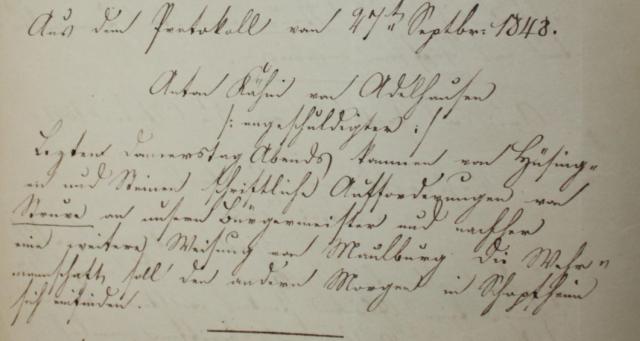 Aus dem Protokoll vom 27t. Septbr: 1848.
Anton Kähni von Adelhausen
/: angeschuldigter :/
Lezten Donnerstag Abends kammen von Hüsing=
en und Steinen schriftliche Aufforderungen von
Struve an unsern Bürgermeister und nachher
eine weitere Weisung von Maulburg die Wehr=
mannschaft soll den andern Morgen in Schopfheim
sich einfinden.